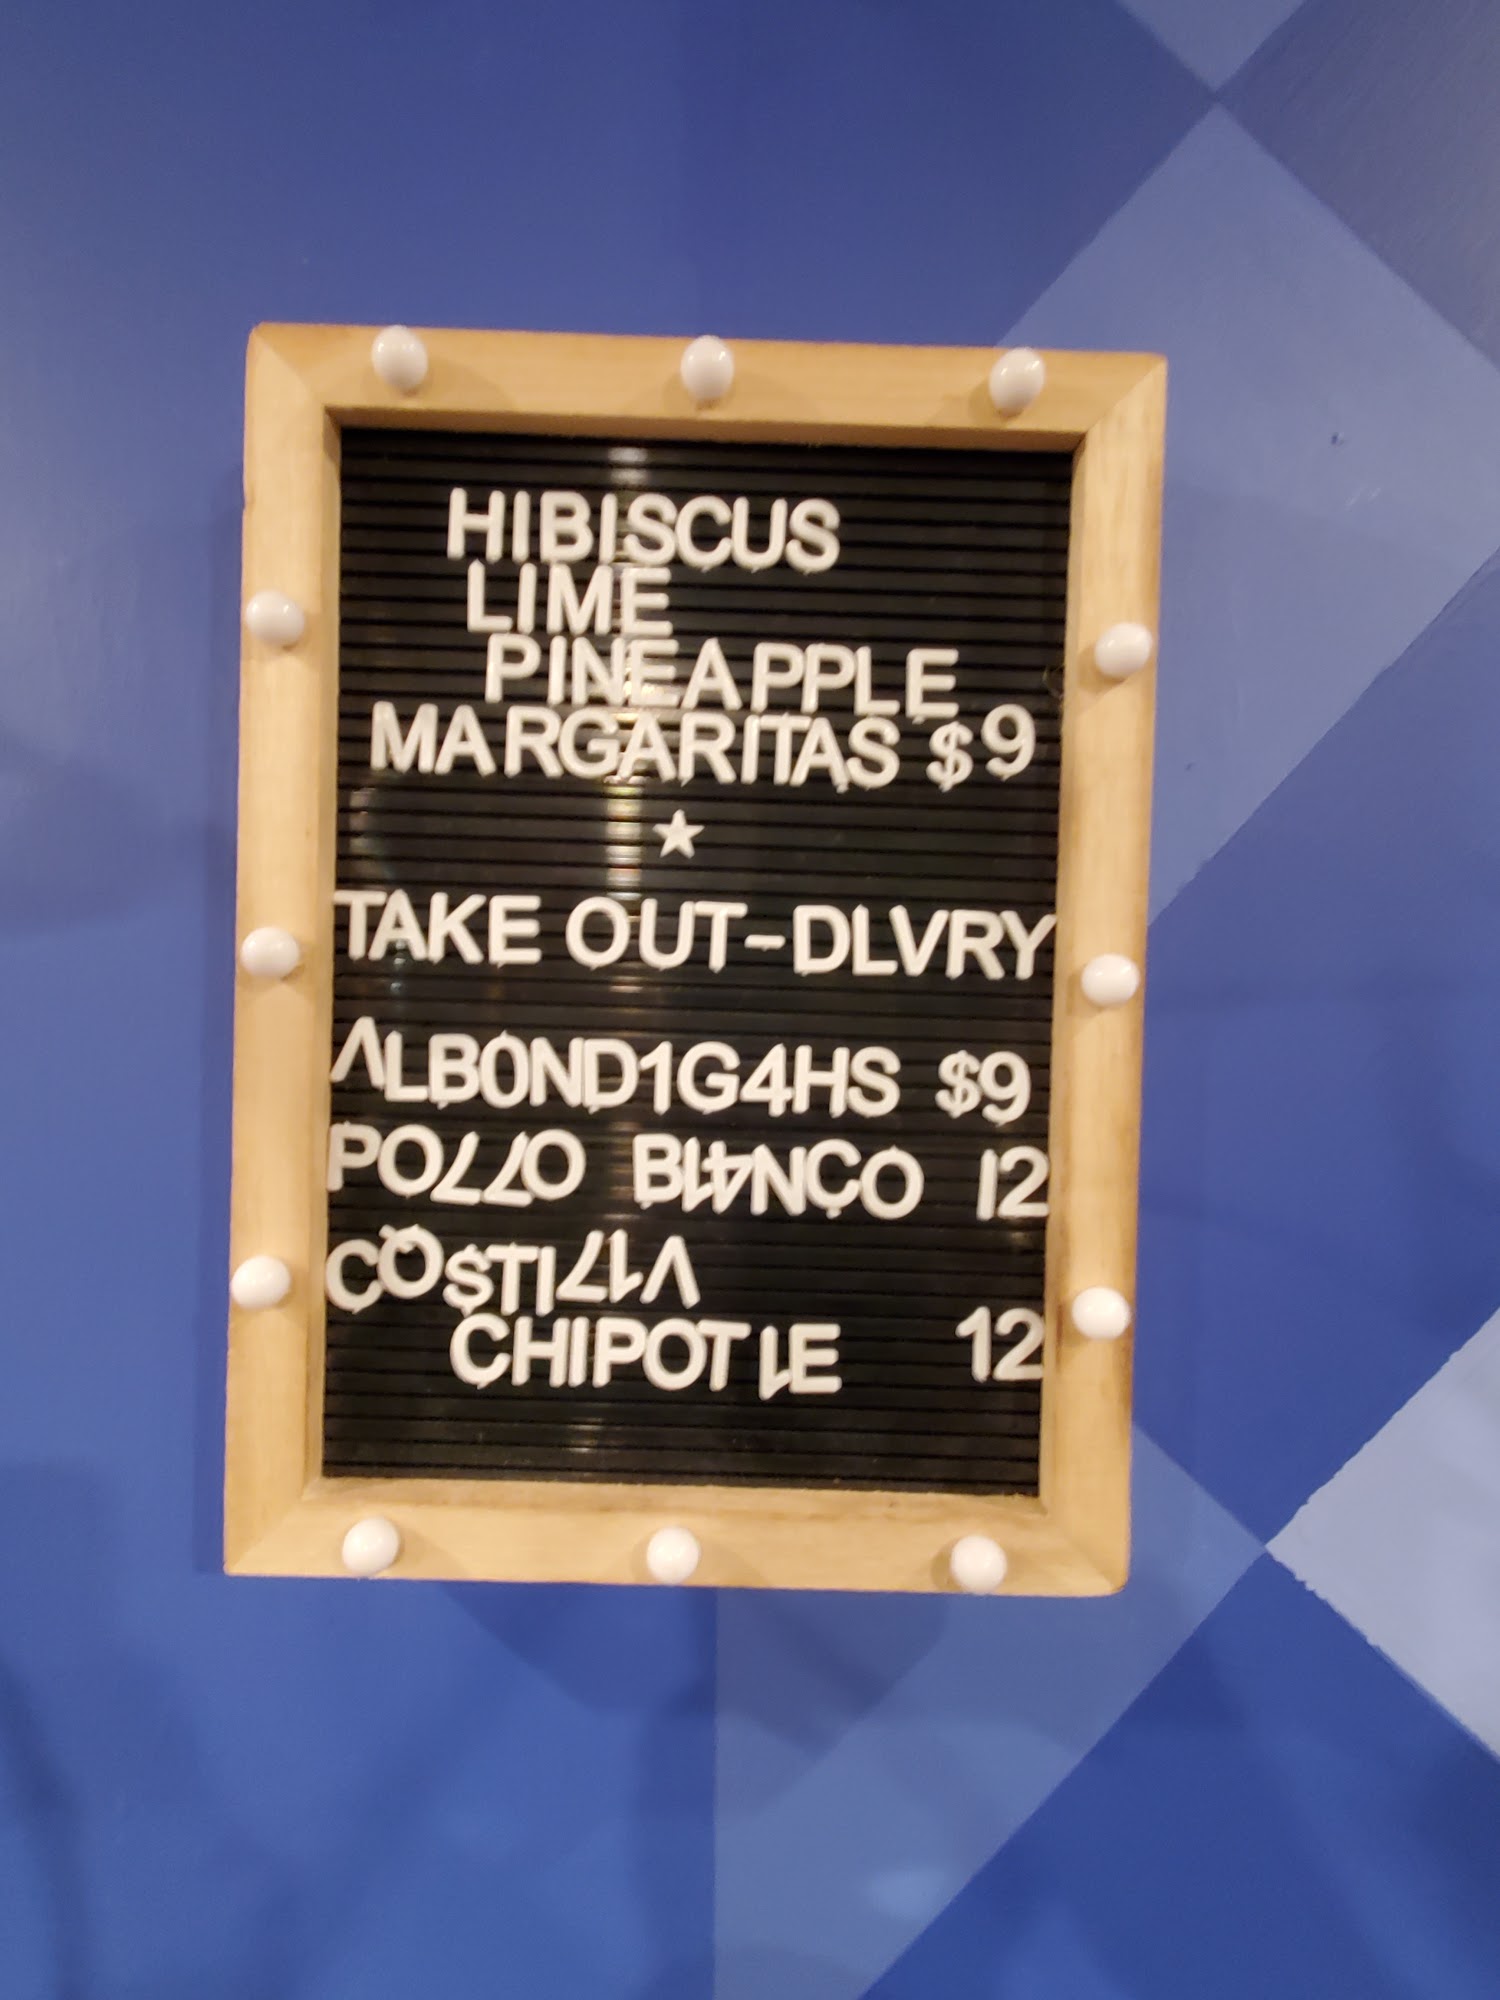 HIBISCUS
LIME
PINEAPPLE
MARGARITAS $9
TAKE OUT-DLVRY
ΛLB0ND1G4HS $9
PO77O BI4NCO 12
COSTI71Λ
CHIPOTLE 12